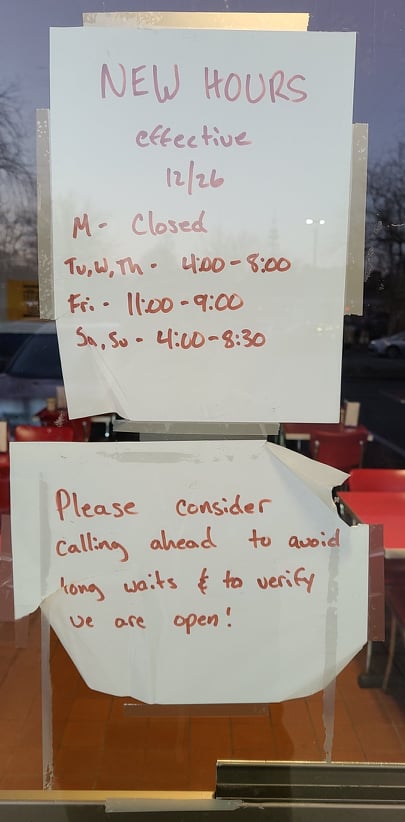 NEW HOURS
effective
12/26
M - Closed
Tu, W, Th - 4:00 - 8:00
Fri - 11:00 - 9:00
Sa, Su - 4:00 - 8:30
Please consider
calling ahead to avoid
long waits & to verify
we are open!